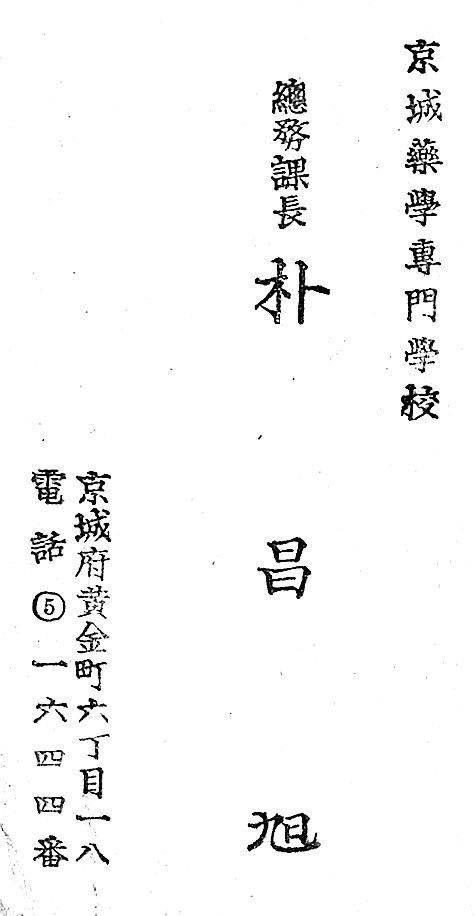 京城藥學專門學校
總務課長 朴昌旭
京城府黃金町六丁目一八
電話⑤一六四四番